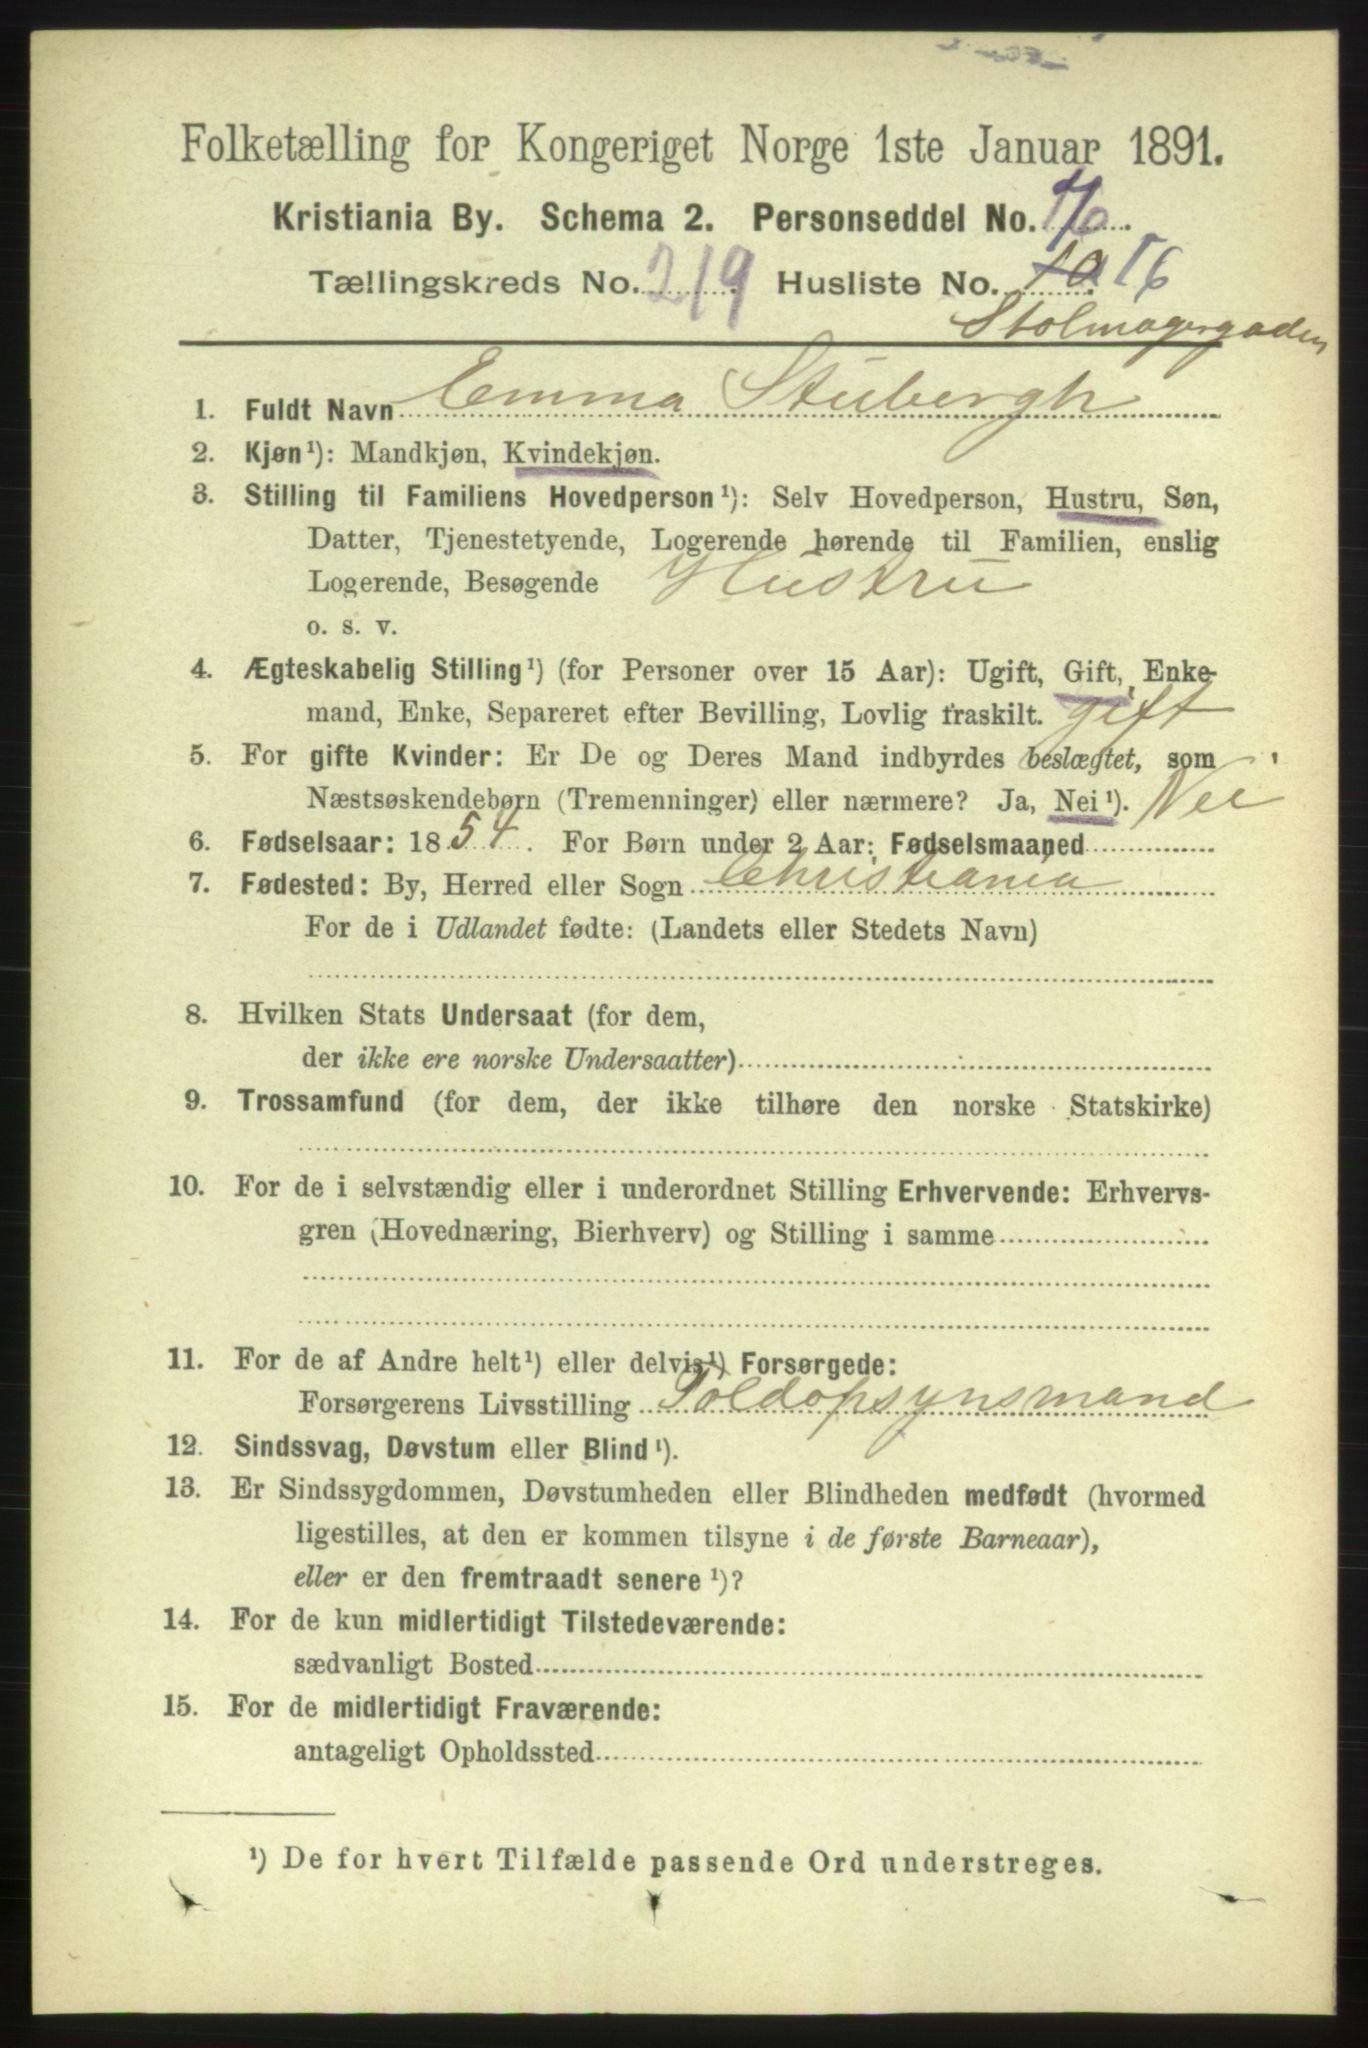 Folketælling for Kongeriget Norge 1ste Januar 1891.
Kristiania By. Schema 2. Personseddel No. 16
Tællingskreds No. 219 Husliste No. 10 16
Stolmagergaden
1. Fuldt Navn Emma Stubergh
2. Kjøn¹): Mandkjøn, Kvindekjøn.
3. Stilling til Familiens Hovedperson¹): Selv Hovedperson, Hustru, Søn,
Datter, Tjenestetyende, Logerende hørende til Familien, enslig
Logerende, Besøgende Hustru
o. s. v.
4. Ægteskabelig Stilling¹) (for Personer over 15 Aar): Ugift, Gift, Enke-
mand, Enke, Separeret efter Bevilling, Lovlig fraskilt. gift
5. For gifte Kvinder: Er De og Deres Mand indbyrdes beslægtet, som
Næstsøskendebørn (Tremenninger) eller nærmere? Ja, Nei¹). Nei
6. Fødselsaar: 1854. For Børn under 2 Aar: Fødselsmaaned
7. Fødested: By, Herred eller Sogn Christiania
For de i Udlandet fødte: (Landets eller Stedets Navn)
8. Hvilken Stats Undersaat (for dem,
der ikke ere norske Undersaatter)
9. Trossamfund (for dem, der ikke tilhøre den norske Statskirke)
10. For de i selvstændig eller i underordnet Stilling Erhvervende: Erhvervs-
gren (Hovednæring, Bierhverv) og Stilling i samme
11. For de af Andre helt¹) eller delvis¹) Forsørgede:
Forsørgerens Livsstilling Toldopsynsmand
12. Sindssvag, Døvstum eller Blind¹).
13. Er Sindssygdommen, Døvstumheden eller Blindheden medfødt (hvormed
ligestilles, at den er kommen tilsyne i de første Barneaar),
eller er den fremtraadt senere¹)?
14. For de kun midlertidigt Tilstedeværende:
sædvanligt Bosted
15. For de midlertidigt Fraværende:
antageligt Opholdssted
¹) De for hvert Tilfælde passende Ord understreges.